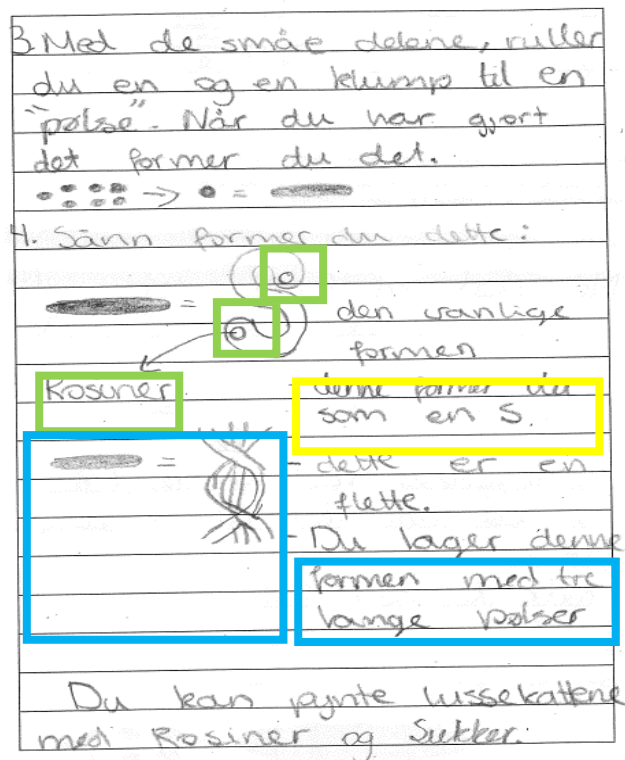 3. Med de småe delene, ruller
du en og en klump til en
"pølse". Når du har gjort
det former du det.
→ =
4. Sånn former du dette:
= den vanlige
formen
Rosiner - denne former du
som en S.
= - dette er en
flette.
- Du lager denne
formen med tre
lange pølser
Du kan pynte lussekattene
med Rosiner og Sukker.